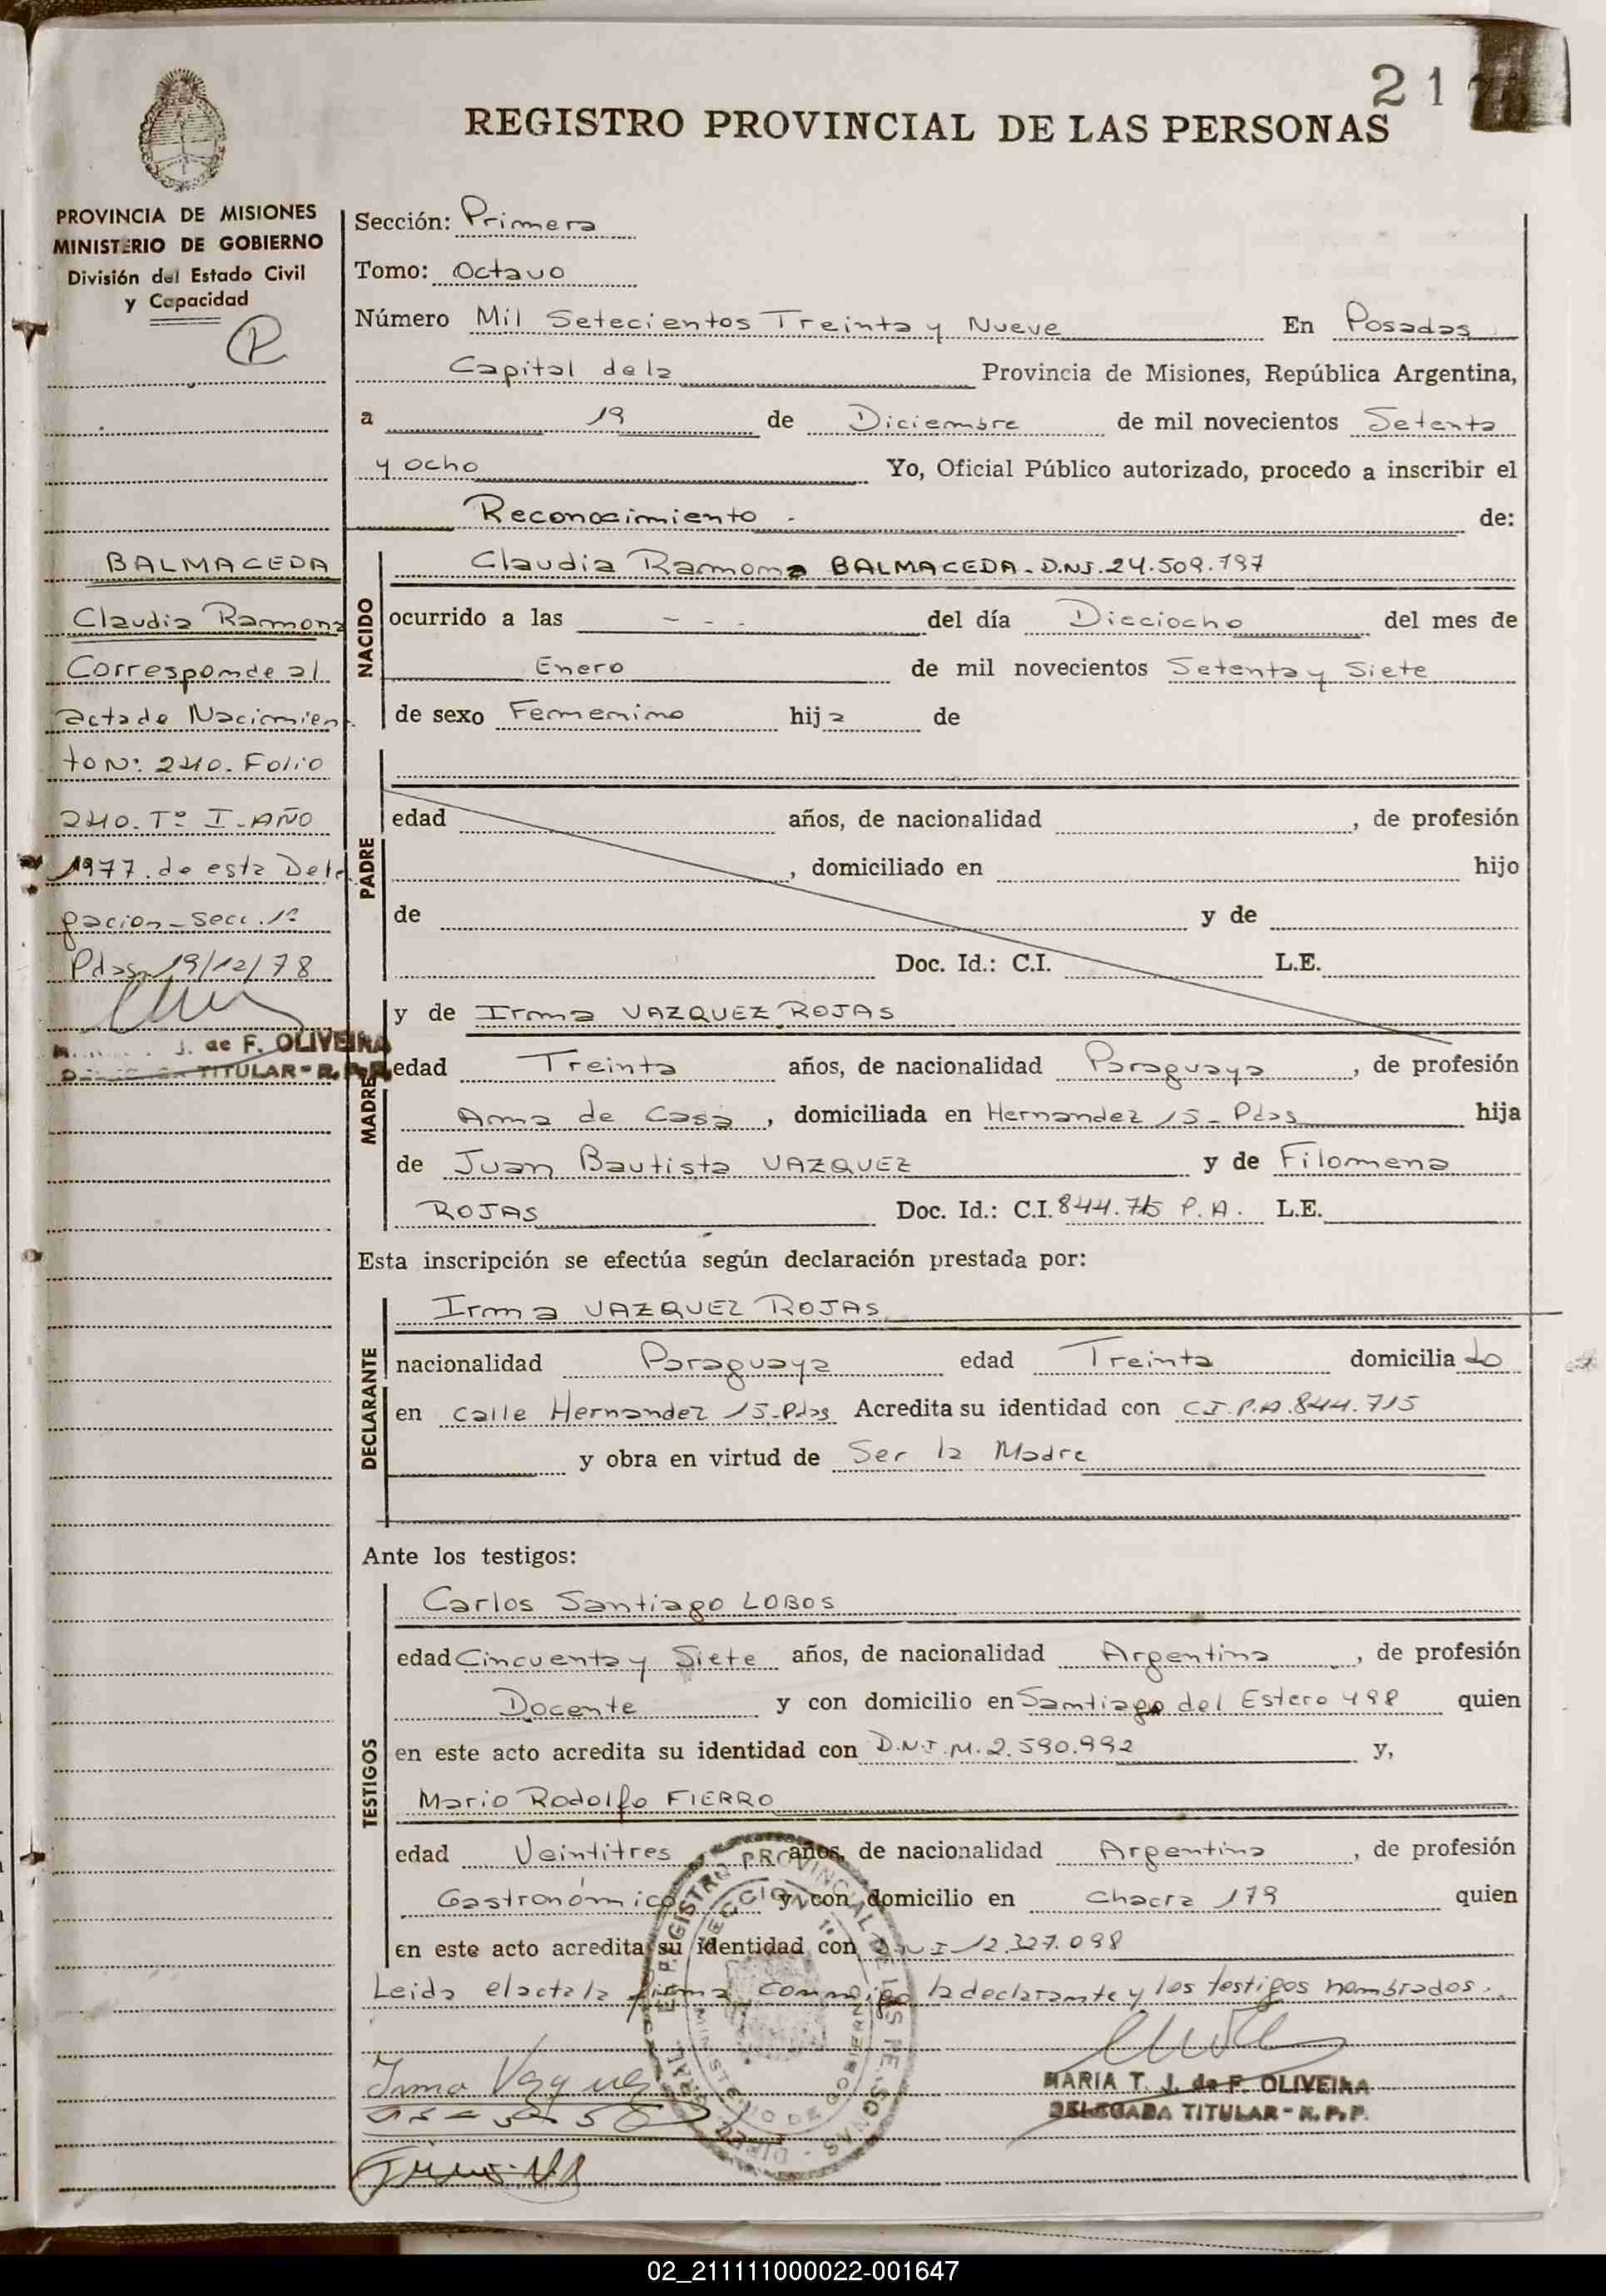 21
REGISTRO PROVINCIAL DE LAS PERSONAS
PROVINCIA DE MISIONES
MINISTERIO DE GOBIERNO
División del Estado Civil
y Capacidad
P
BALMACEDA
Claudia Ramona
Corresponde al
acta de Nacimien
to Nº 240. Folio
240. Tº I. AÑO
1977. de esta Dele
gacion - Secc. 1ª
Pdas, 19/12/78
J. de F. OLIVEIRA
TITULAR - R. P. P.
Sección: Primera
Tomo: Octavo
Número Mil Setecientos Treinta y Nueve En Posadas
Capital de la Provincia de Misiones, República Argentina,
a 19 de Diciembre de mil novecientos Setenta
y ocho Yo, Oficial Público autorizado, procedo a inscribir el
Reconocimiento de:
NACIDO
Claudia Ramona BALMACEDA - D.N.I. 24.509.797
ocurrido a las - - - del día Dieciocho del mes de
Enero de mil novecientos Setenta y Siete
de sexo Femenino hija de
PADRE
edad años, de nacionalidad , de profesión
, domiciliado en hijo
de y de
Doc. Id.: C.I. L.E.
MADRE
y de Irma VAZQUEZ ROJAS
edad Treinta años, de nacionalidad Paraguaya , de profesión
Ama de Casa , domiciliada en Hernandez 15 - Pdas hija
de Juan Bautista VAZQUEZ y de Filomena
ROJAS Doc. Id.: C.I. 844.715 P.A. L.E.
Esta inscripción se efectúa según declaración prestada por:
DECLARANTE
Irma VAZQUEZ ROJAS
nacionalidad Paraguaya edad Treinta domicilia do
en calle Hernandez 15 - Pdas Acredita su identidad con C.I.P.A. 844.715
y obra en virtud de Ser la Madre
Ante los testigos:
TESTIGOS
Carlos Santiago LOBOS
edad Cincuenta y Siete años, de nacionalidad Argentina , de profesión
Docente y con domicilio en Santiago del Estero 498 quien
en este acto acredita su identidad con D.N.I. M. 2.590.992 y,
Mario Rodolfo FIERRO
edad Veintitres años, de nacionalidad Argentina , de profesión
Gastronómico y con domicilio en Chacra 179 quien
en este acto acredita su identidad con D.N.I 12.327.098
Leida el acta la firma conmigo la declarante y los testigos nombrados.
Irma Vazquez
MARIA T. J. de F. OLIVEIRA
DELEGADA TITULAR - R. P. P.
REGISTRO PROVINCIAL DE LAS PERSONAS
SECCION 1ª
MINISTERIO DE GOBIERNO
02_211111000022-001647